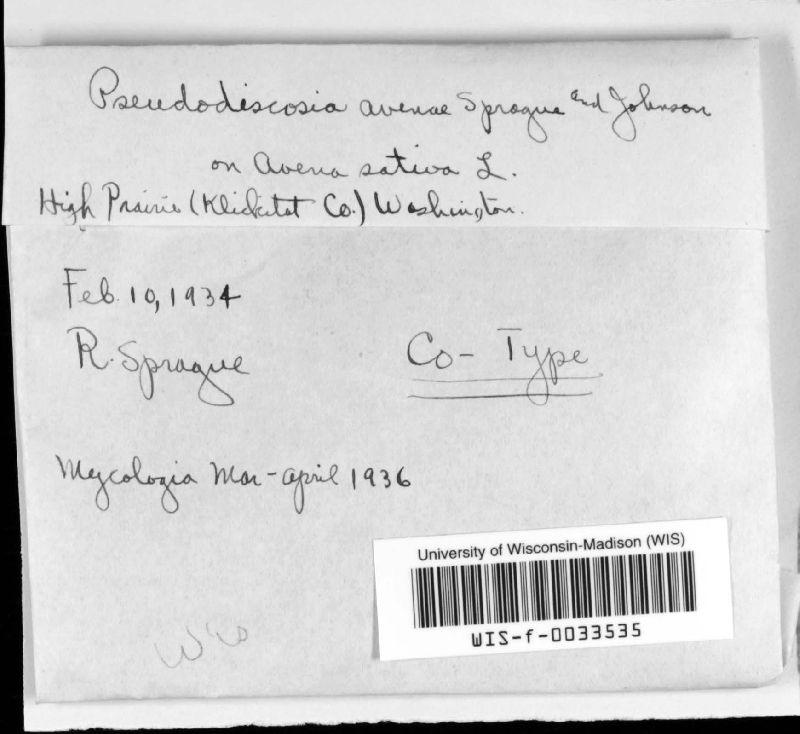 Pseudodiscosia avenae Sprague and Johnson
on Avena sativa L.
High Prairie (Klickitat Co.) Washington.
Feb. 10, 1934
R. Sprague
Co-Type
Mycologia Mar-April 1936
University of Wisconsin-Madison (WIS)
WIS-f-0033535
Wis